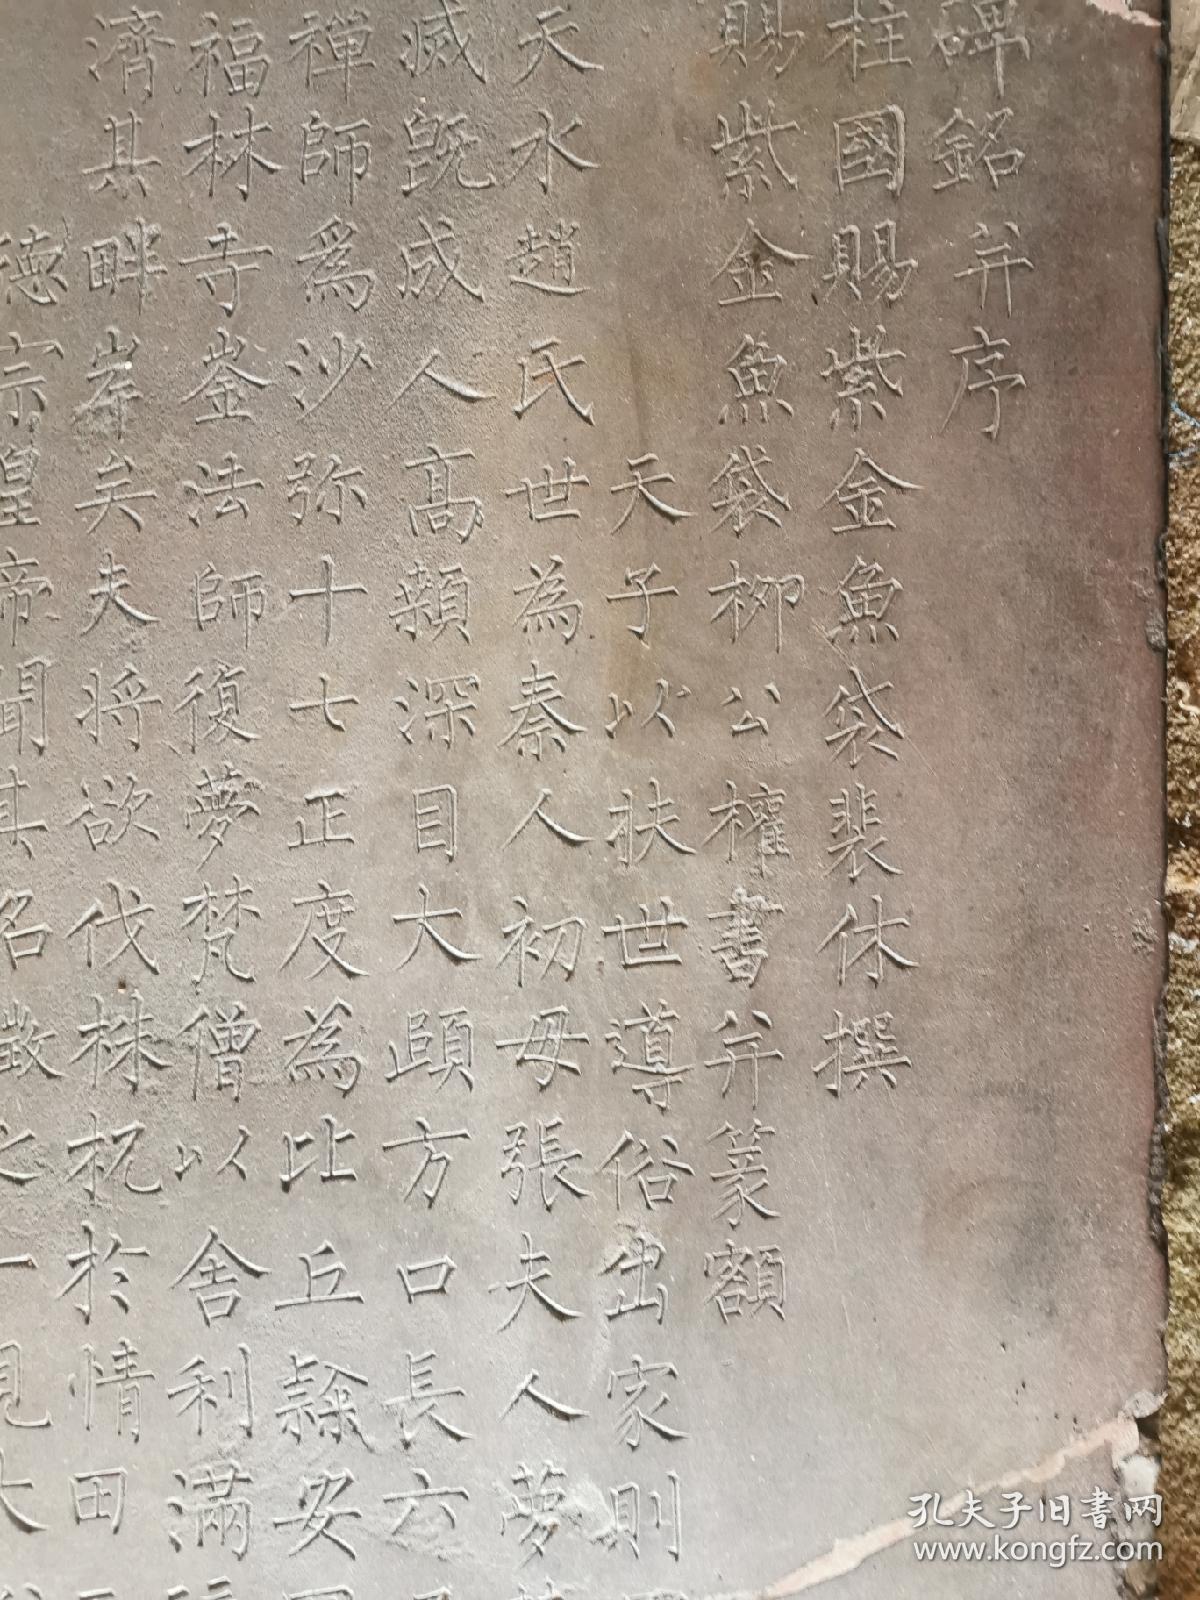 碑銘并序
柱國賜紫金魚袋裴休撰
賜紫金魚袋柳公權書并篆額
天子以扶世導俗出家則
天水趙氏世為秦人初母張夫人夢
滅既成人高顙深目大頤方口長六
禪師為沙弥十七正度為比丘隸安
福林寺崟法師復夢梵僧以舍利滿
濟其畔岸矣夫將欲伐株杌於情田
德宗皇帝聞其名徵之一見大
孔夫子旧書网
www.kongfz.com